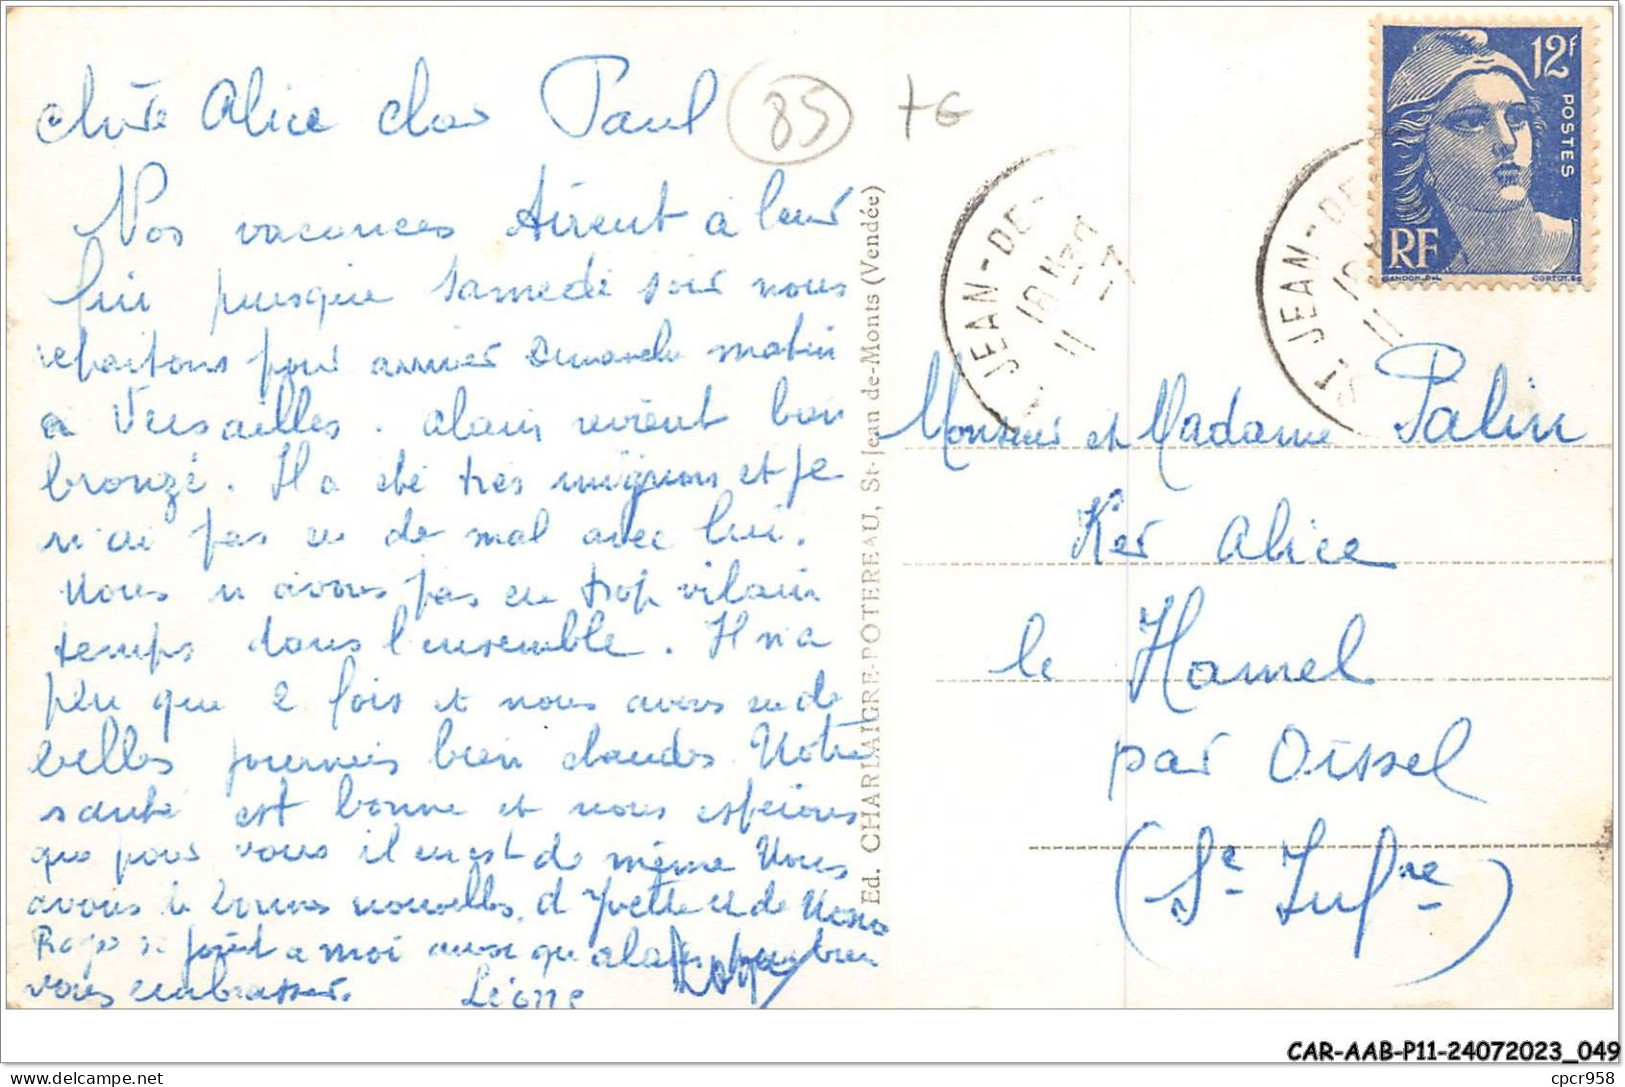 chère Alice cher Paul
85
+G
Nos vacances tirent à leur
fin puisque samedi soir nous
repartons pour arriver dimanche matin
à Versailles. Alain revient bien
bronzé. Il a été très mignon et je
n'ai pas eu de mal avec lui.
Nous n'avons pas eu trop vilain
temps dans l'ensemble. Il n'a
plu que 2 fois et nous avons eu de
belles journées bien chaudes. Notre
santé est bonne et nous espérons
que pour vous il en est de même. Nous
avons de bonnes nouvelles d'Yvette et de
Roger se joint à moi ainsi qu'Alain pour bien
vous embrasser. Léone Roger
Ed. CHARLAIGRE-POTEREAU, St-Jean-de-Monts (Vendée)
ST JEAN-DE-
18H30
11
ST JEAN-DE
18H
11
12F
POSTES
RF
GANDON.DEL
CORTOT.SC
Monsieur et Madame Palin
Ker Alice
le Hamel
par Oissel
(Se Infre)
CAR-AAB-P11-24072023_049
delcampe.net
cpcr958